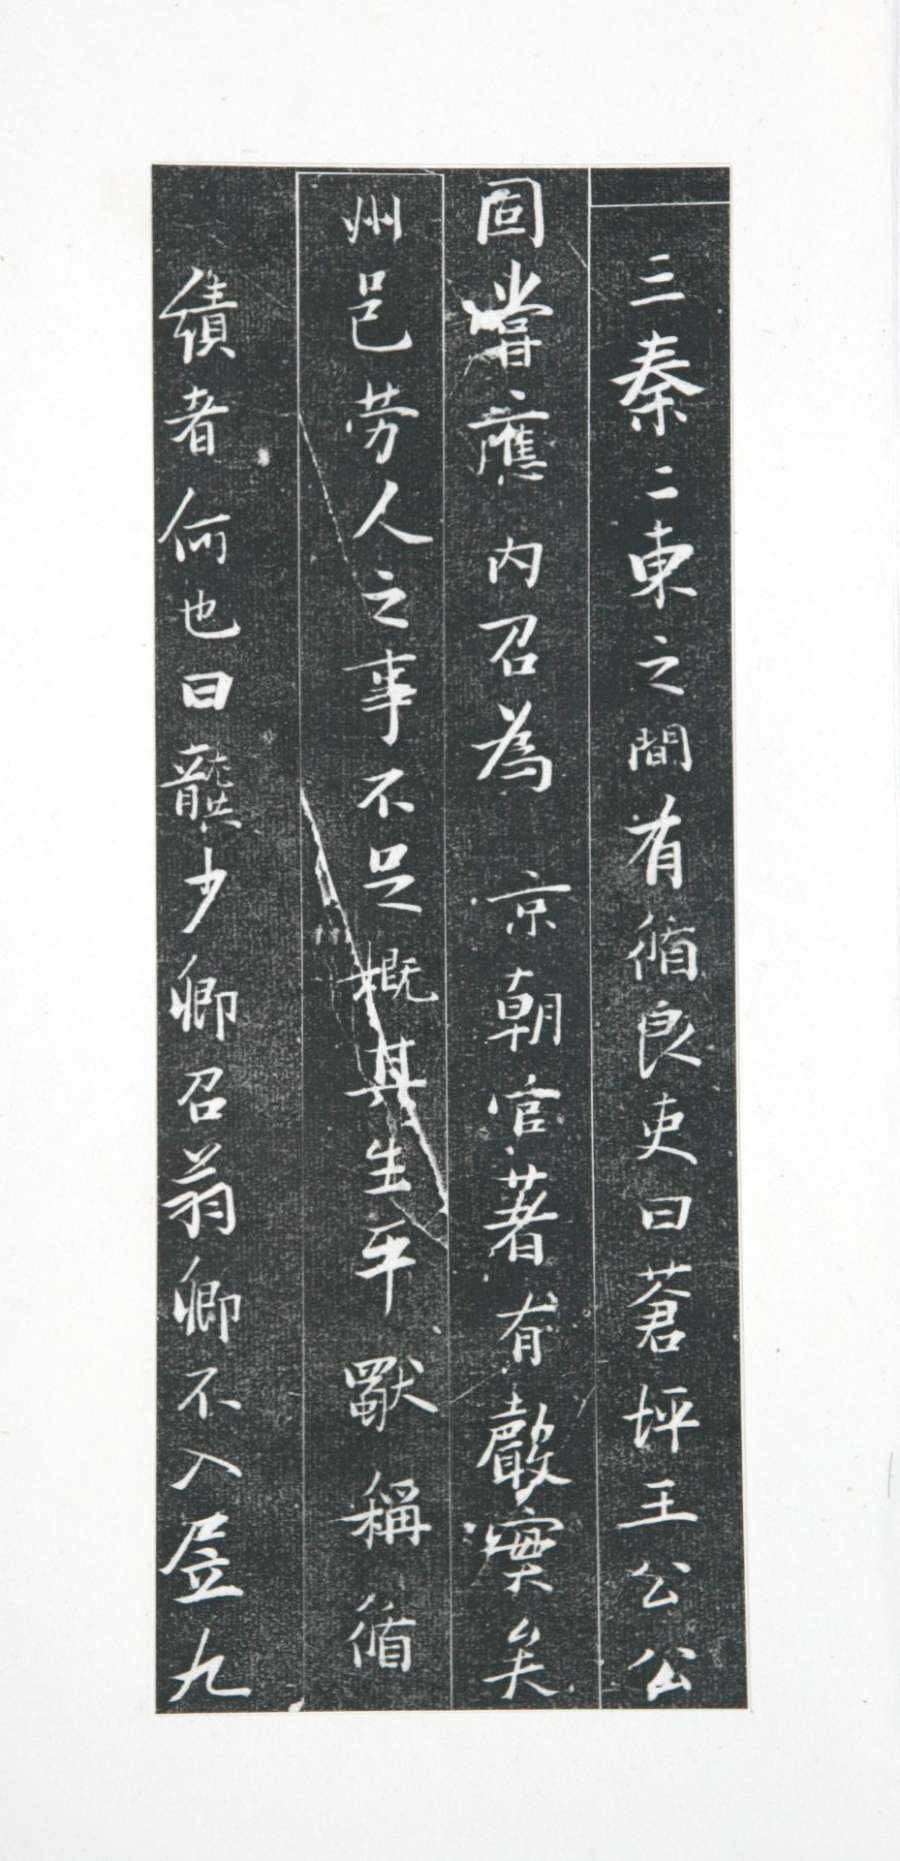 三秦二東之間有循良吏曰蒼坪王公公
固嘗應內召為京朝官著有聲實矣
州邑劳人之事不足概其生平獸稱循
績者何也曰龔少卿召翁卿不入登九